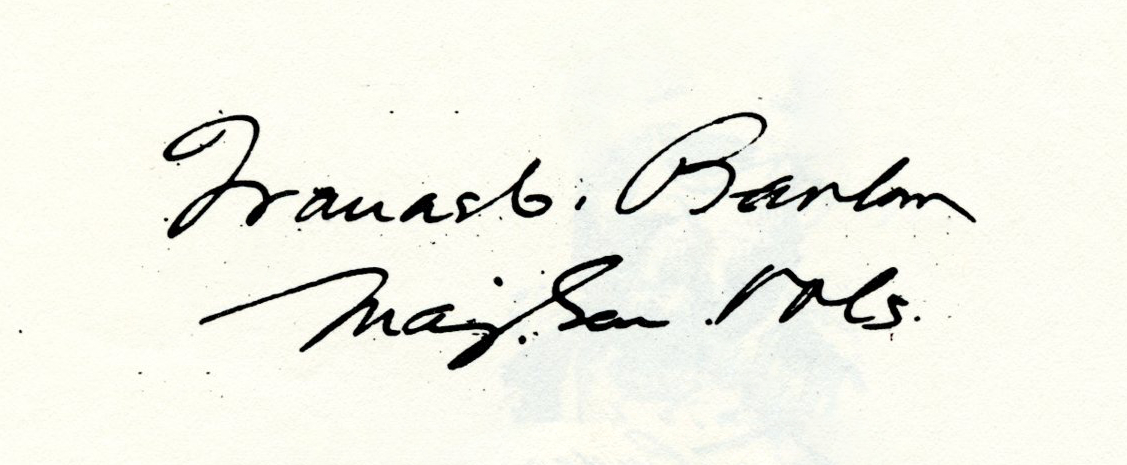 Francis C. Barlow
Maj. Gen. Vols.